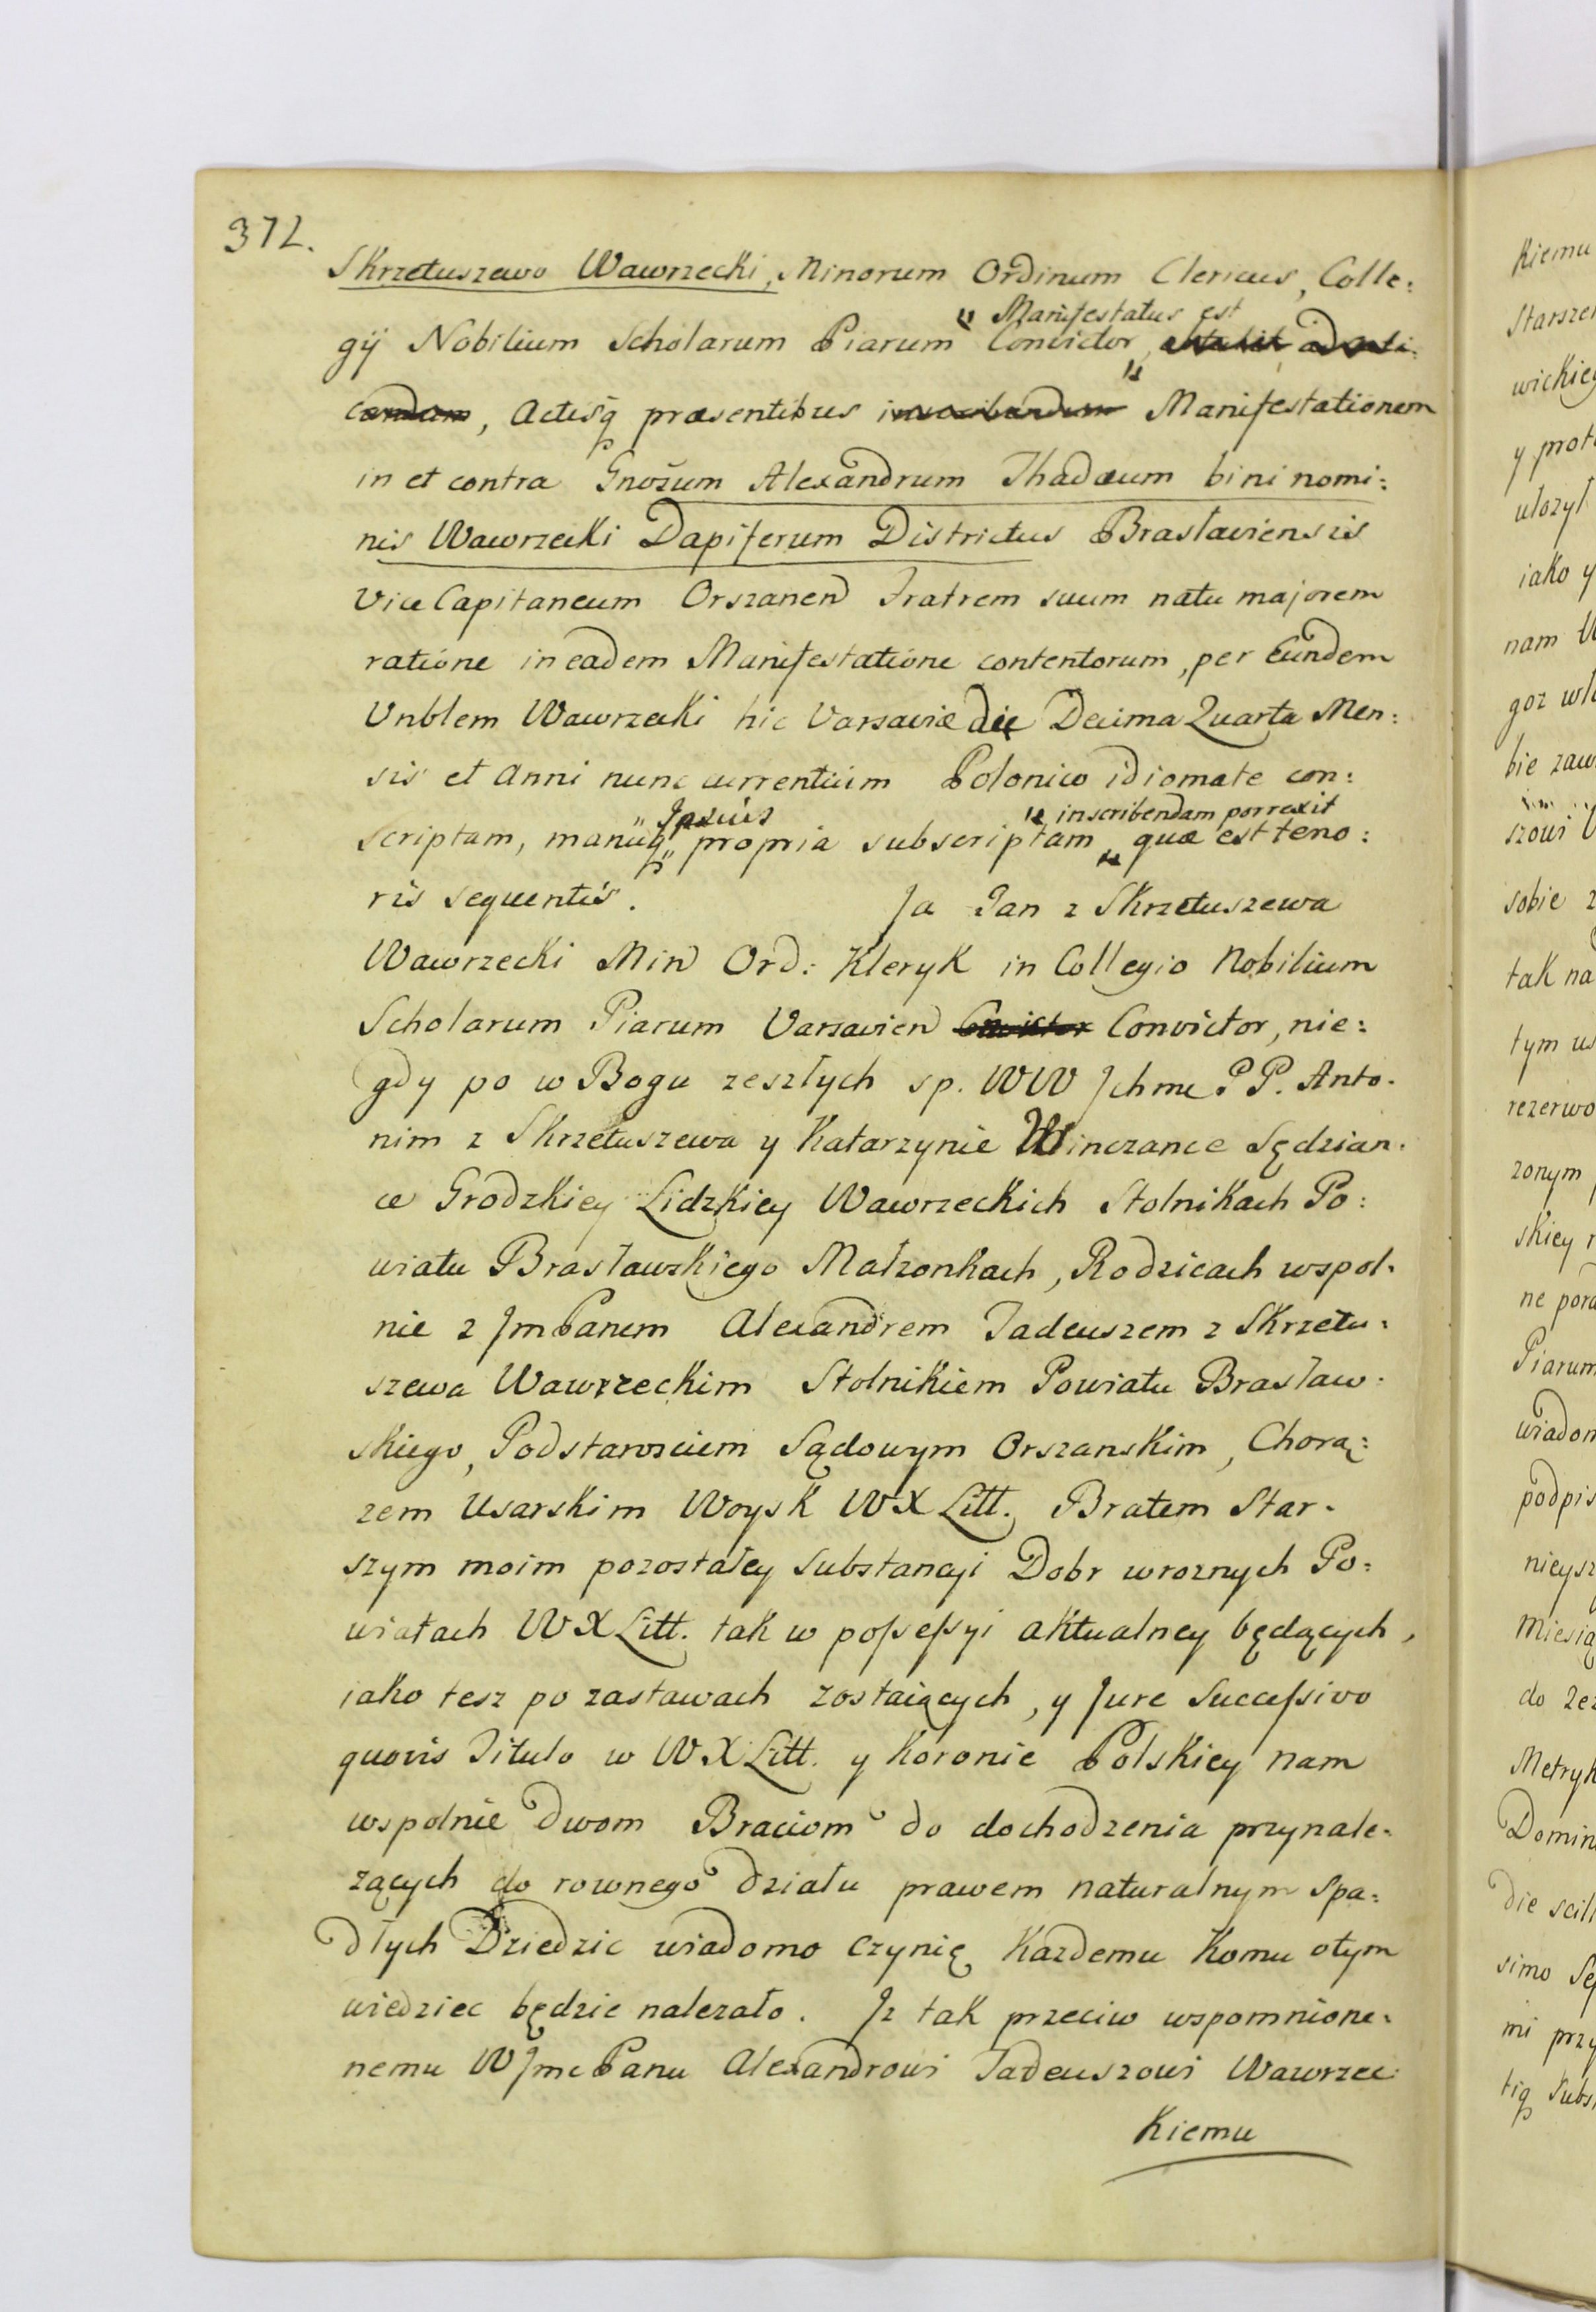 372.
Skrzetuszewo Wawrzecki, Minorum Ordinum Clericus, Colle:
" Manifestatus est
gÿ Nobilium Scholarum Piarum Convictor,
candam, Actisq̃ præsentibus inscribendam Manifestationem
in et contra Gnosum Alexandrum Thadæum bini nomi:
nis Wawrzecki Dapiferum Districtus Brasłaviensis
Vice Capitaneum Orszanen Fratrem suum natu majorem
ratione in eadem Manifestatione contentorum, per Eundem
Vnblem Wawrzecki hic Varsaviæ die Decima Quarta Men:
sis et Anni nunc currentium Polonico idiomate con:
" Ipsius " inscribendam porrexit
Scriptam, manuq̃ " propria subscriptam " quæ est teno:
ris sequentis. Ja Jan z Skrzetuszewa
Wawrzecki Min Ord: Kleryk in Collegio Nobilium
Scholarum Piarum Varsavien Convictor Convictor, nie:
gdy po w Bogu zeszłych sp. WW Jchmc PP. Anto.
nim z Skrzetuszewa y Katarzynie Winczance Sędzian.
ce Grodzkiey Lidzkiey Wawrzeckich Stolnikach Po:
wiatu Brasławskiego Małzonkach, Rodzicach wspol.
nie z JmPanem Alexandrem Tadeuszem z Skrzetu:
szewa Wawrzeckim Stolnikiem Powiatu Brasław.
skiego, Podstarosciem Sądowym Orszanskim, Chorą:
zem Usarskim Woysk WX Litt. Bratem Star.
szym moim pozostałey Substancyi Dobr w roznych Po:
wiatach WX Litt. tak w possessyi aktualney będących,
iako tesz po zastawach zostaiących, y Jure Successivo
quovis Titulo w WX Litt. y Koronie Polskiey nam
wspolnie dwom Braciom do dochodzenia przynale.
zących do rownego działu prawem naturalnym spa:
dłych Dziedzic wiadomo czynię Kazdemu Komu o tym
wiedziec będzie nalezało. Jz tak przeciw wspomnione.
nemu WJmcPanu Alexandrowi Tadeuszowi Wawrzec:
Kiemu
kiemu
wickiey
ułozył
iako y
nam
bie
szowi
sobie z
tak na
tym
rezerwo
zonym
skiey
ne
Piarum
podpis
Miesią
do
Metryk
Domin
die
simo
mi przy